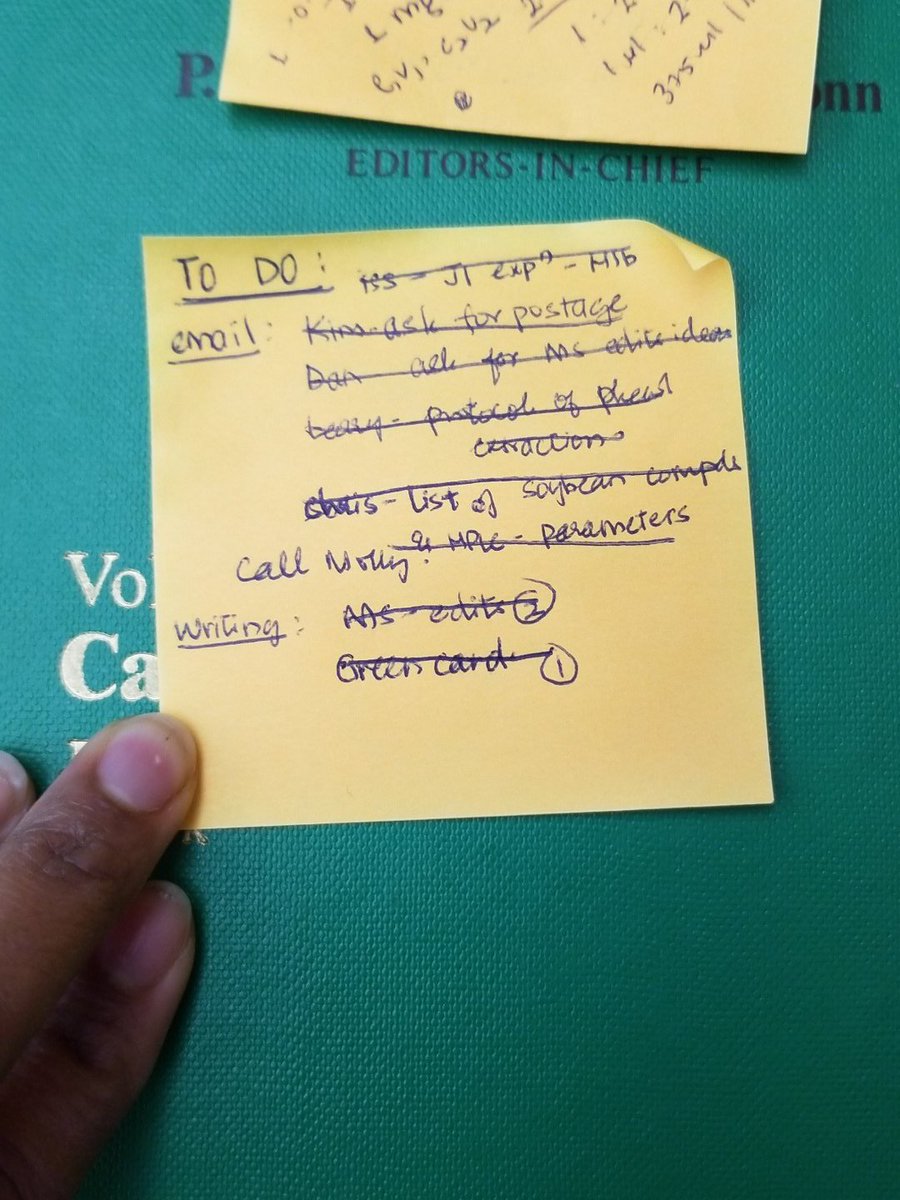 L mg
C₁V₁ = C₂V₂
P. onn
EDITORS-IN-CHIEF
TO DO: JT expⁿ -
email: Kim-ask for postage
Dan ask for MS edits ideas
- protocol of
extraction
chris - List of soybean compds
& HPLC - parameters
Call Molly!
writing: MS edits ②
Green card ①
Vol
Ca